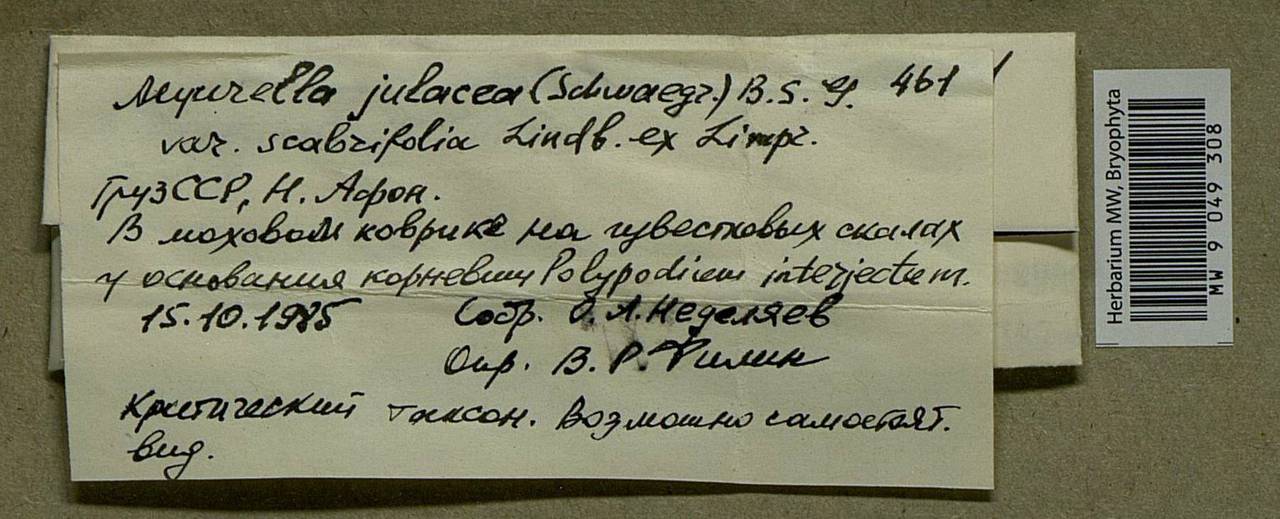 Myurella julacea (Schwaegr.) B. S. G. 461
var. scabrifolia Lindb. ex Limpr.
ГрузССР, Н. Афон.
В моховом коврике на известковых скалах
у основания корневищ Polypodium interjectum.
15.10.1985 Собр. О. А. Неделяев
Опр. В. Р. Филин
Критический таксон. Возможно самостоят.
вид.
Herbarium MW, Bryophyta
MW 9 049 308